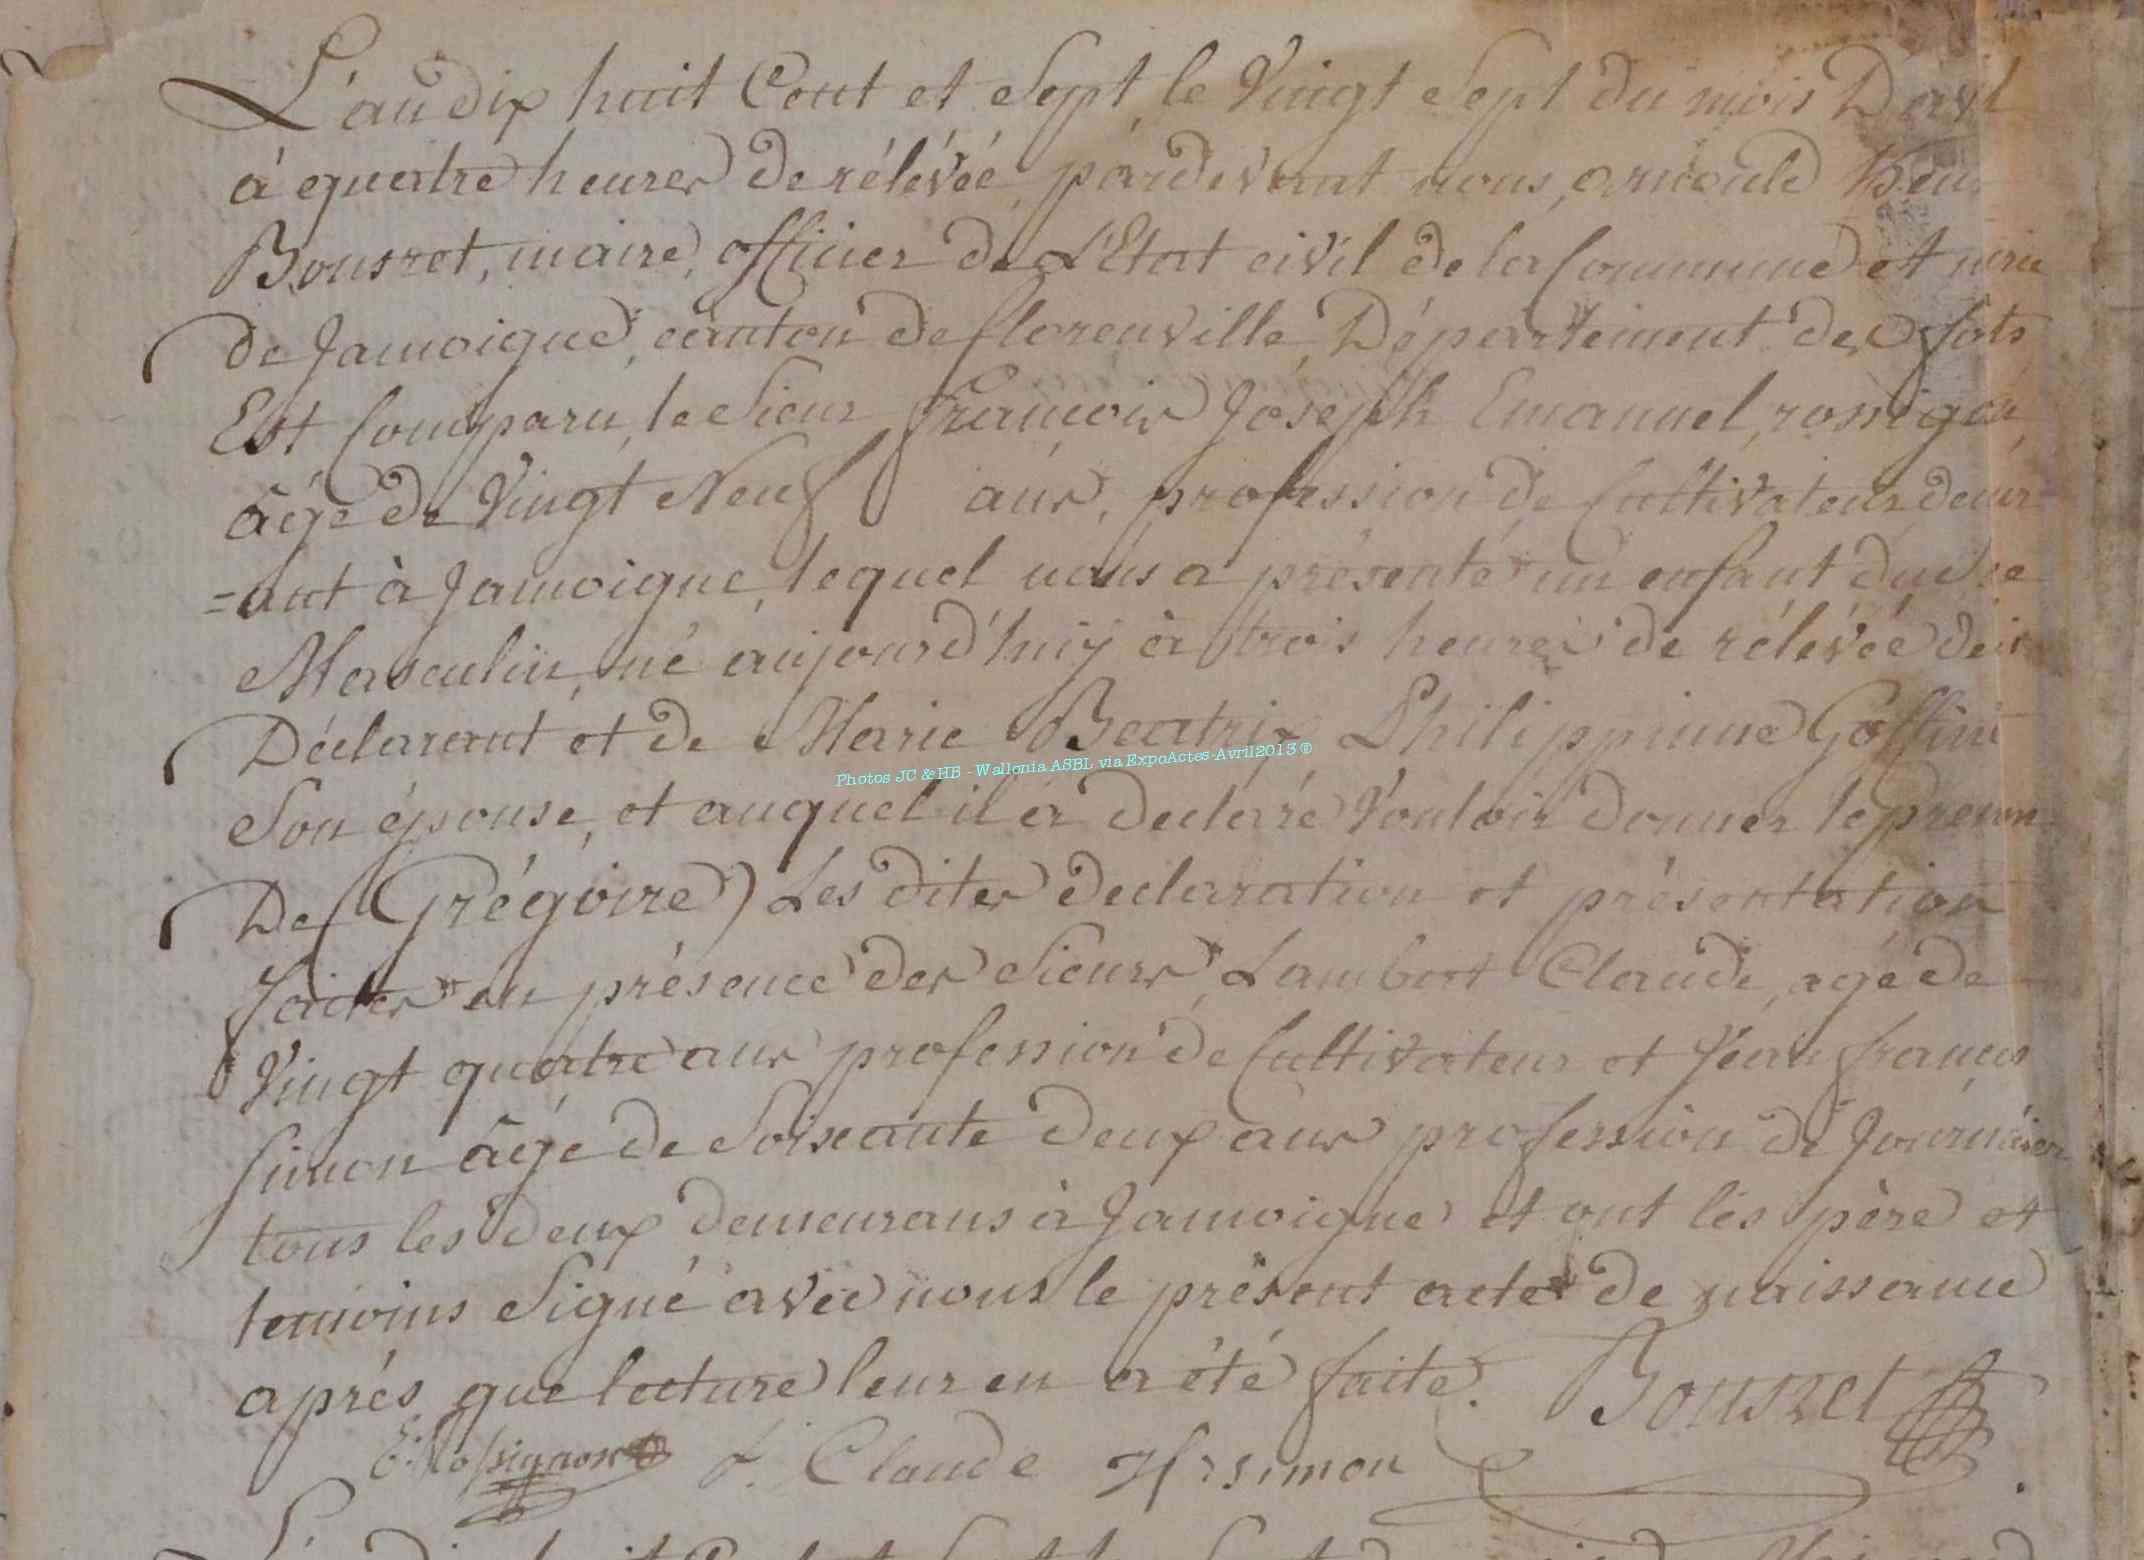 L'an dix huit Cent et Sept, le Vingt Sept du mois D'avril
à quatre heures de rélévéé, pardevant nous, arnould henr
Bousret, maire, officier de L'Etat civil de la Commune et mrie
de Jamoigne, canton de florenville, Département des fots
Est Comparu, le Sieur françois Joseph Emanuel, rossignon
âgé de Vingt Neuf ans, profession de Cultivateur demr
=ant à Jamoigne, lequel nous a présenté un enfant du
Masculin, né aujourd'huÿ à trois heures de rélévéé de
Déclarant et de Marie Beatrix Philippinne Goffint
Photos JC & HB - Wallonia ASBL via ExpoActes-Avril2013 ©
Son épouse, et auquel il a declaré Vouloir donner le prenom
De (Grégoire) Les dites declaration et présentation
faites en présence des Sieurs, Lambert Claude, agé de
Vingt quatre ans profession de Cultivateur et Jean françois
Simon âgé de Soixante deux ans profession de Journalier
tous les deux demeurans à Jamoigne et ont les père et
temoins Signé avec nous le présent acte de naissance
aprés que lecture leur en a été faite. Bousret
E: Rossignon L. Claude J f simon